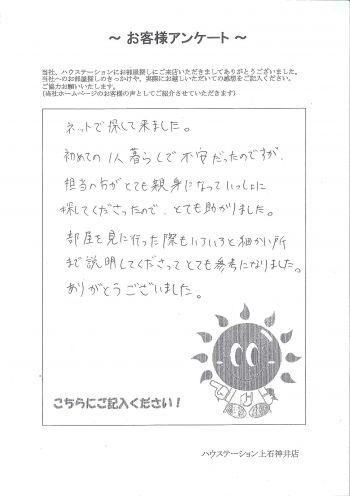 ～ お客様アンケート ～
当社、ハウステーションにお部屋探しにご来店いただきましてありがとうございました。
当社へのお部屋探しのきっかけや、実際にお越しいただいての感想をご記入ください。
ご協力お願いいたします。
(当社ホームページのお客様の声としてご紹介させていただきます)
ネットで探して来ました。
初めての1人暮らしで不安だったのですが、
担当の方がとても親身になっていっしょに
探してくださったので、とても助かりました。
部屋を見に行った際もいろいろと細かい所
まで説明してくださってとても参考になりました。
ありがとうございました。
こちらにご記入ください！
ハウステーション上石神井店